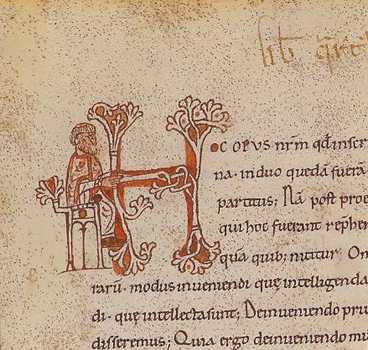 lib̄ q̄rt
HOC OPVS nr̄m qd̄ inscri
na · in duo quedā fuerā
partitus; Nā post proe
qui hoc fuerant rep̄hen
quā quib; nititur Om
rarū · modus inveniendi quę intelligenda
di · quę intellecta sunt; De inveniendo priu
disseremus; Quia ergo de inveniendo mu